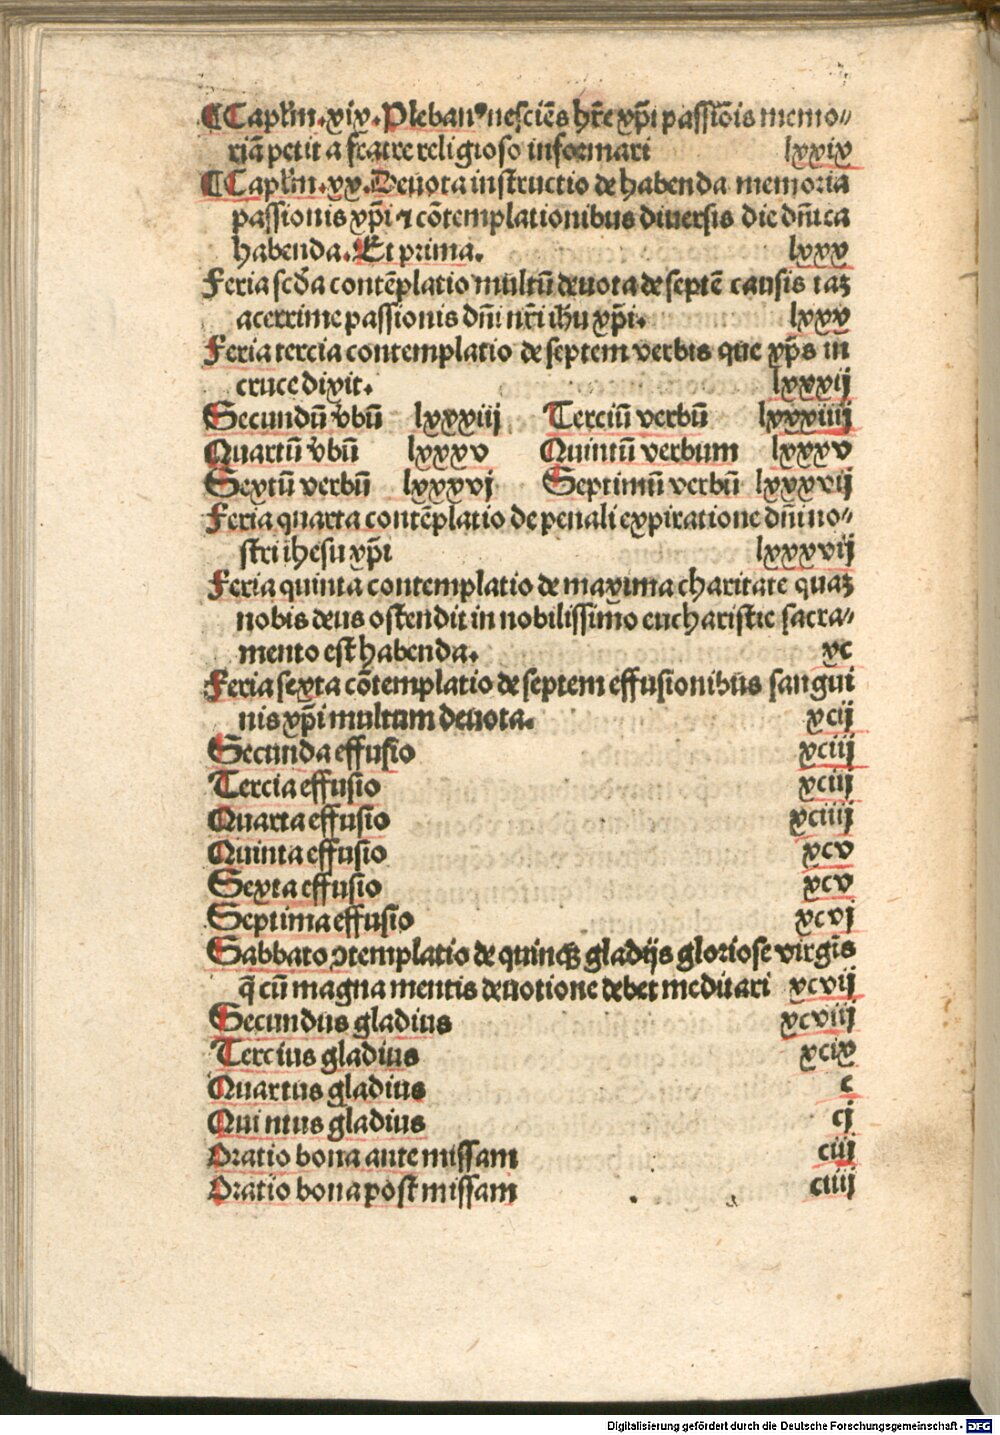 ¶ Capl'm .xix. Pleban⁹ nesciēs hr̄e xp̄i passiōis memo⸗
riā petit a fratre religioso informari lxxix
¶ Capl'm .xx. Deuota instructio de habenda memoria
passionis xp̄i ⁊ cōtemplationibus diuersis die dn̄ica
habenda. Et prima. lxxx
Feria scd̄a contēplatio multū deuota de septē causis taꝫ
acerrime passionis dn̄i nr̄i ihu xp̄i. lxxx
Feria tercia contemplatio de septem verbis que xp̄s in
cruce dixit. lxxxij
Secundū v̄bū lxxxiij Terciū verbū lxxxiiij
Quartū v̄bū lxxxv Quintū verbum lxxxv
Sextū verbū lxxxvj Septimū verbū lxxxvij
Feria quarta contēplatio de penali expiratione dn̄i no⸗
stri ihesu xp̄i lxxxvij
Feria quinta contemplatio de maxima charitate quaꝫ
nobis deus ostendit in nobilissimo eucharistie sacra⸗
mento est habenda. xc
Feria sexta cōtemplatio de septem effusionibus sangui
nis xp̄i multum deuota. xcij
Secunda effusio xciij
Tercia effusio xciij
Quarta effusio xciiij
Quinta effusio xcv
Sexta effusio xcv
Septima effusio xcvj
Sabbato ↄtemplatio de quinqꝫ gladijs gloriose virgīs
q̄ cū magna mentis deuotione debet meditari xcvij
Secundus gladius xcviij
Tercius gladius xcix
Quartus gladius c
Quintus gladius cj
Oratio bona ante missam ciij
Oratio bona post missam ciiij
Digitalisierung gefördert durch die Deutsche Forschungsgemeinschaft - DFG